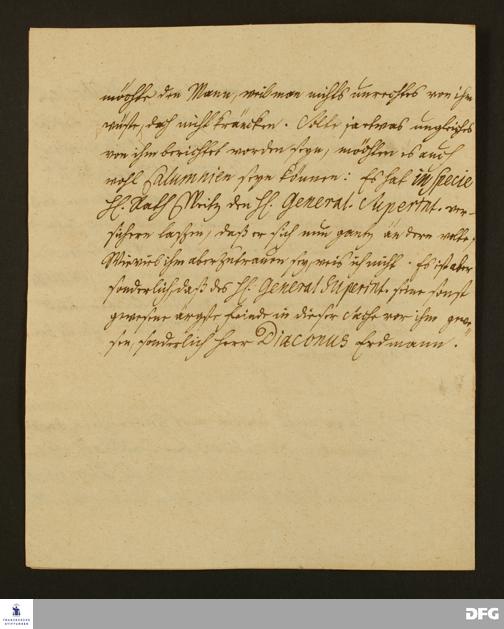 möchte den Mann, weil man nichts unrechtes von ihm
wüste, doch nicht kräncken. Solte ja etwas ungleiches
von ihm berichtet worden seyn, möchten es auch
wohl Calumnien seyn können: Es hat in specie
H. Rath den H. General-Superint. ver-
sichern laßen, daß er sich nun gantz ändern wolte,
Wie viel ihm aber zutrauen sey, weis ich nicht. Es ist aber
sonderlich, daß des H. General Superint. seine sonst
gewesene ärgste Feinde in dieser Sache vor ihm gewe-
sen, sonderlich Herr Diaconus Erdmann.
FRANCKESCHE
STIFTUNGEN
DFG